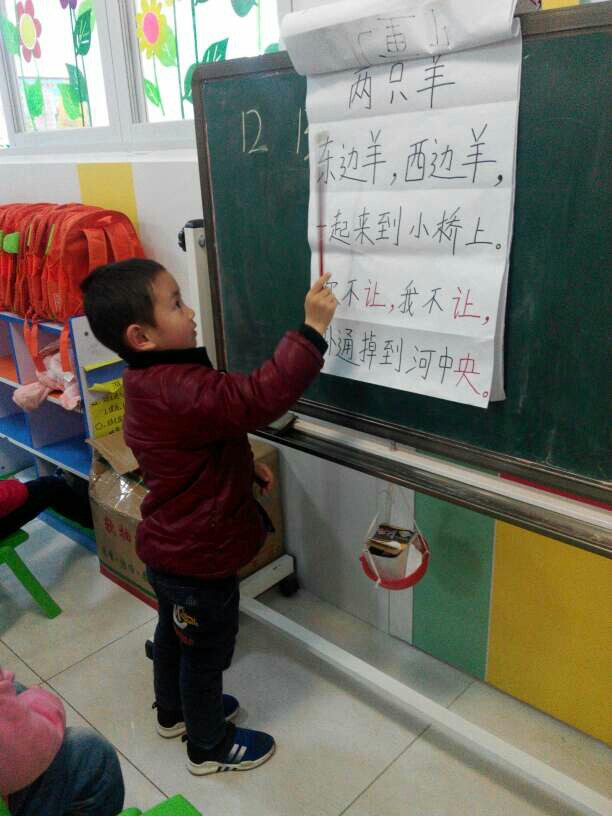 两只羊
12
东边羊，西边羊，
一起来到小桥上。
你不让，我不让，
扑通掉到河中央。